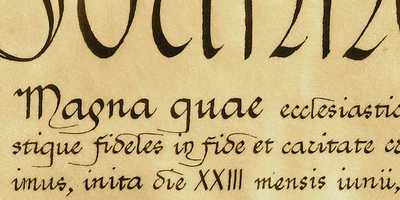 Magna quae ecclesiastic
stique fideles in fide et caritate
imus, inita die XXIII mensis iunii,